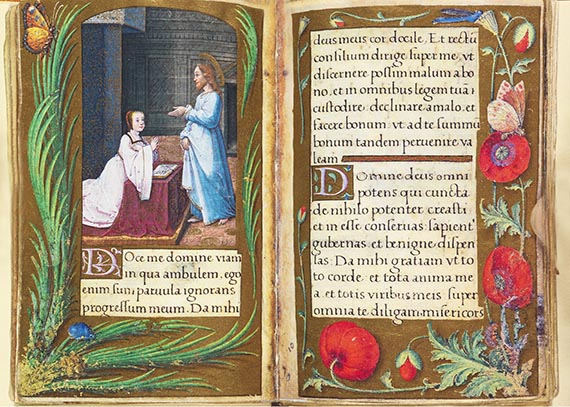 DOce me domine viam
in qua ambulem. ego
enim sum paruula ignorans
progressum meum. Da mihi
deus meus cor docile, Et rectū
consilium dirige super me, vt
discernere possim malum a bo
no, et in omnibus legem tuā
custodire, declinare a malo, et
facere bonum vt ad te summū
bonum tandem peruenire va
leam
DOmine deus omni
potens qui cuncta
de nihilo potenter creasti
et in esse conseruas sapienť
gubernas et benigne dispen
sas. Da mihi gratiam vt to
to corde, et tota anima me
a, et totis viribus meis super
omnia te diligam, misericors